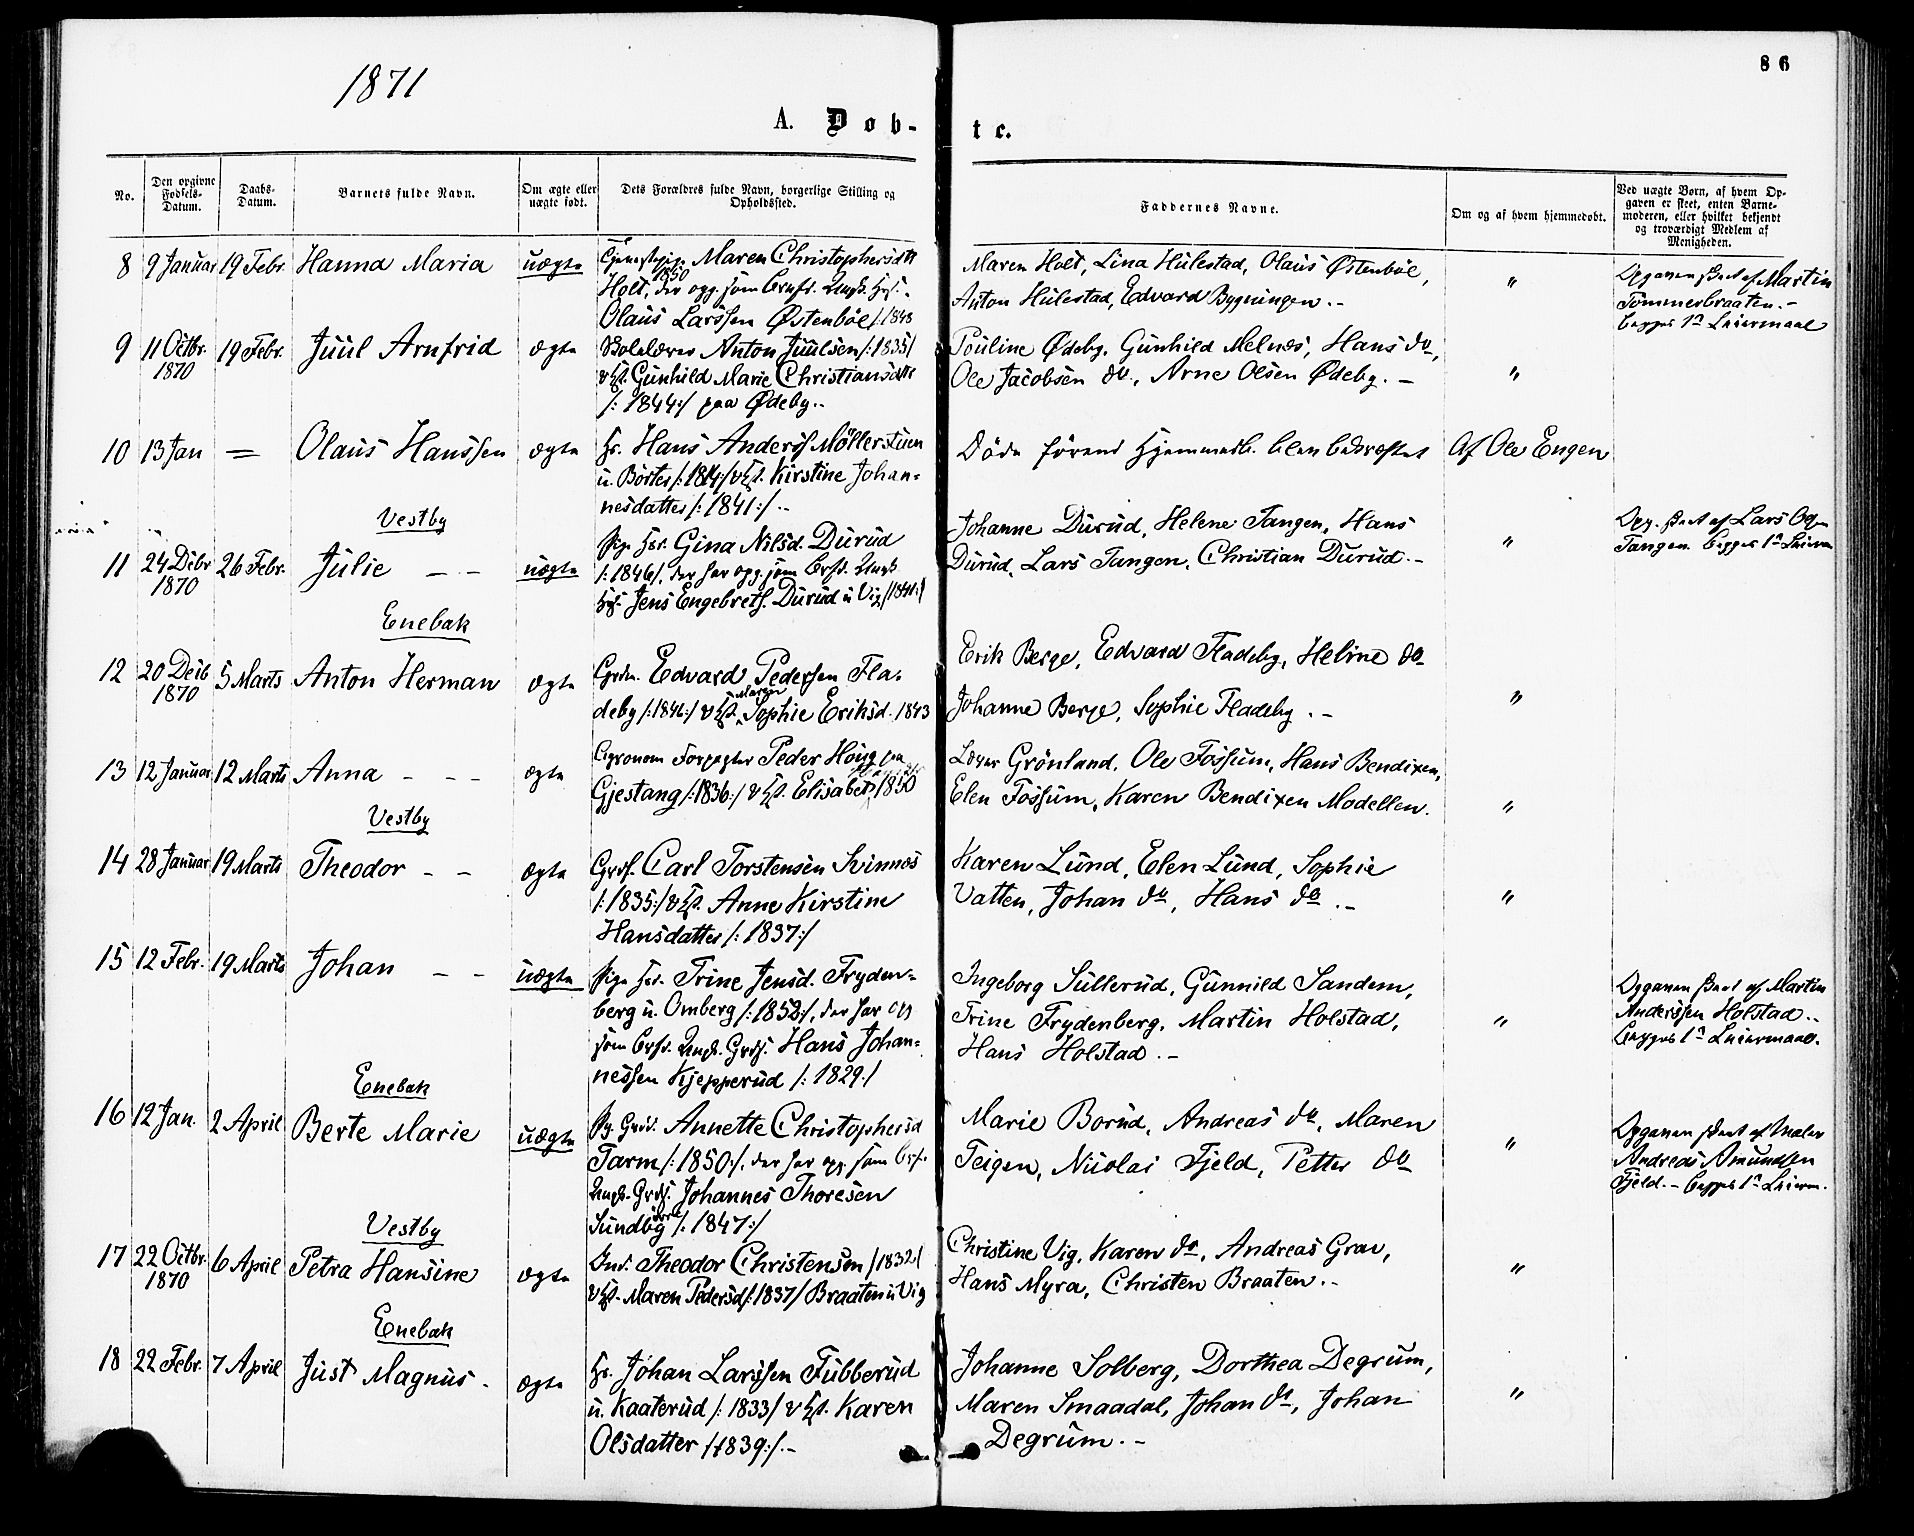 1871
86
A. Døb-
te.
No.
Den opgivne Fødsels-Datum.
Daabs-Datum.
Barnets fulde Navn.
Om ægte eller uægte født.
Dets Forældres fulde Navn, borgerlige Stilling og Opholdssted.
Faddernes Navne.
Om og af hvem hjemmedøbt.
Ved uægte Børn, af hvem Opgaven er skeet, enten Barnemoderen, eller hvilket bekjendt og troværdigt Medlem af Menigheden.
8 9 Januar 19 Febr. Hanna Maria uægte
Tjenestpige Maren Christophersdtr
Holt, 1850 der opg. som Brnfd. Ungk. Hs.
Olaus Larssen Østenbøl /: 1848
Maren Holt, Lina Hulestad, Olaus Østenbøl,
Anton Hulestad, Edvard Bygningen. -
"
Opgaven skeet af Martin
Tømmerbraaten. -
begges 1ste Leiermaal
9 11 Octbr. 1870 19 Febr. Juul Arnfrid ægte
Skolelærer Anton Juulsen /: 1835/
& Hst. Gunhild Marie Christiansdtr
/: 1844:/ paa Ødeby. -
Pouline Ødeby, Gunhild Melnæs, Hans do,
Ole Jacobsen do., Arne Olsen Ødeby. -
"
10 13 Jan = Olaus Hanssen ægte
Hs. Hans Anders. Möllerstuen
u. Börter /: 1814:/ & Hst. Kirstine Johan=
nesdatter /: 1841:/ -
Døde førend Hjemmedb. blev bekræftet
Af Ole Engen
Vestby
11 24 Debr 1870 26 Febr. Julie - - uægte
Pige Hs. Gina Nilsd. Durud
/: 1846/, der har opg. som Brfd. Ungk
Hs. Jens Engebrets. Durud u Vig /1841:/
Johanne Durud, Helene Tangen, Hans
Durud, Lars Tangen, Christian Durud. -
"
Opg. skeet af Lars Ols
Tangen. begges 1ste Leierm
Enebak
12 20 Decb 1870 5 Marts Anton Herman ægte
Grdm. Edvard Pedersen Fla-
deby /: 1846:/ & Hst. Maren Sophie Eriksd. 1843
Erik Berge, Edvard Fladeby, Heline do
Johanne Berge, Sophie Fladeby. -
"
13 12 Januar 12 Marts Anna - - - ægte
Agronom Forpagter Peder Houg paa
Gjestang /: 1836:/ & Hst. Elisabet 1850
Lærer Grönland, Ole Fossum, Hans Bendixen,
Elen Fossum, Karen Bendixen Modellen.
"
Vestby
14 28 Januar 19 Marts Theodor - - ægte
Grds. Carl Torstensen Svinnæs
/: 1835:/ & Hst. Anne Kirstine
Hansdatter /: 1837:/
Karen Lund, Elen Lund, Sophie
Vatten, Johan do, Hans do. -
"
15 12 Febr. 19 Marts Johan - - uægte
Pige Hs. Trine Jensd. Fryden=
berg u. Omberg /: 1852:/, der har opg
som Brfd. Ungk. Grds. Hans Johan=
nessen Kjepperud /: 1829:/
Ingeborg Sullerud, Gunnild Sandem,
Trine Frydenberg, Martin Holstad,
Hans Holstad. -
"
Opgaven skeet af Martin
Anderssen Holstad. -
begges 1ste Leiermaal.
Enebak
16 12 Jan. 2 April Berte Marie uægte
Pg. Grds. Annette Christophersd
Tarm /: 1850:/, der har opg. som Brf.
Ungk. Grds. Johannes Thoresen
Sundby /: 1847:/
Marie Borud, Andreas do, Maren
Teigen, Nicolai Fjeld, Petter do
"
Opgaven skeet af Maler
Andreas Amundsen
Fjeld. - begges 1ste Leierm.
Vestby
17 22 Octbr. 1870 6 April Petra Hansine ægte
Ind. Theodor Christensen /1832/
& Hst. Maren Pedersd /: 1837/ Braaten u Vig
Christine Vig, Karen do, Andreas Grav,
Hans Myra, Christen Braaten. -
"
Enebak
18 22 Febr. 7 April Just Magnus. ægte
Hs. Johan Larssen Fubberud
u. Kaaterud /: 1833/ & Hst. Karen
Olsdatter /1839:/. -
Johanne Solberg, Dorthea Degrum,
Maren Smaadal, Johan do, Johan
Degrum. -
"